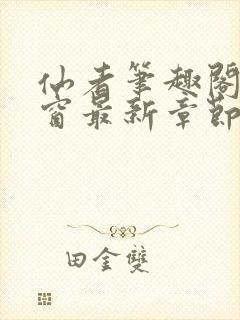 仙者筆趣閣
窗最新章節
田金雙